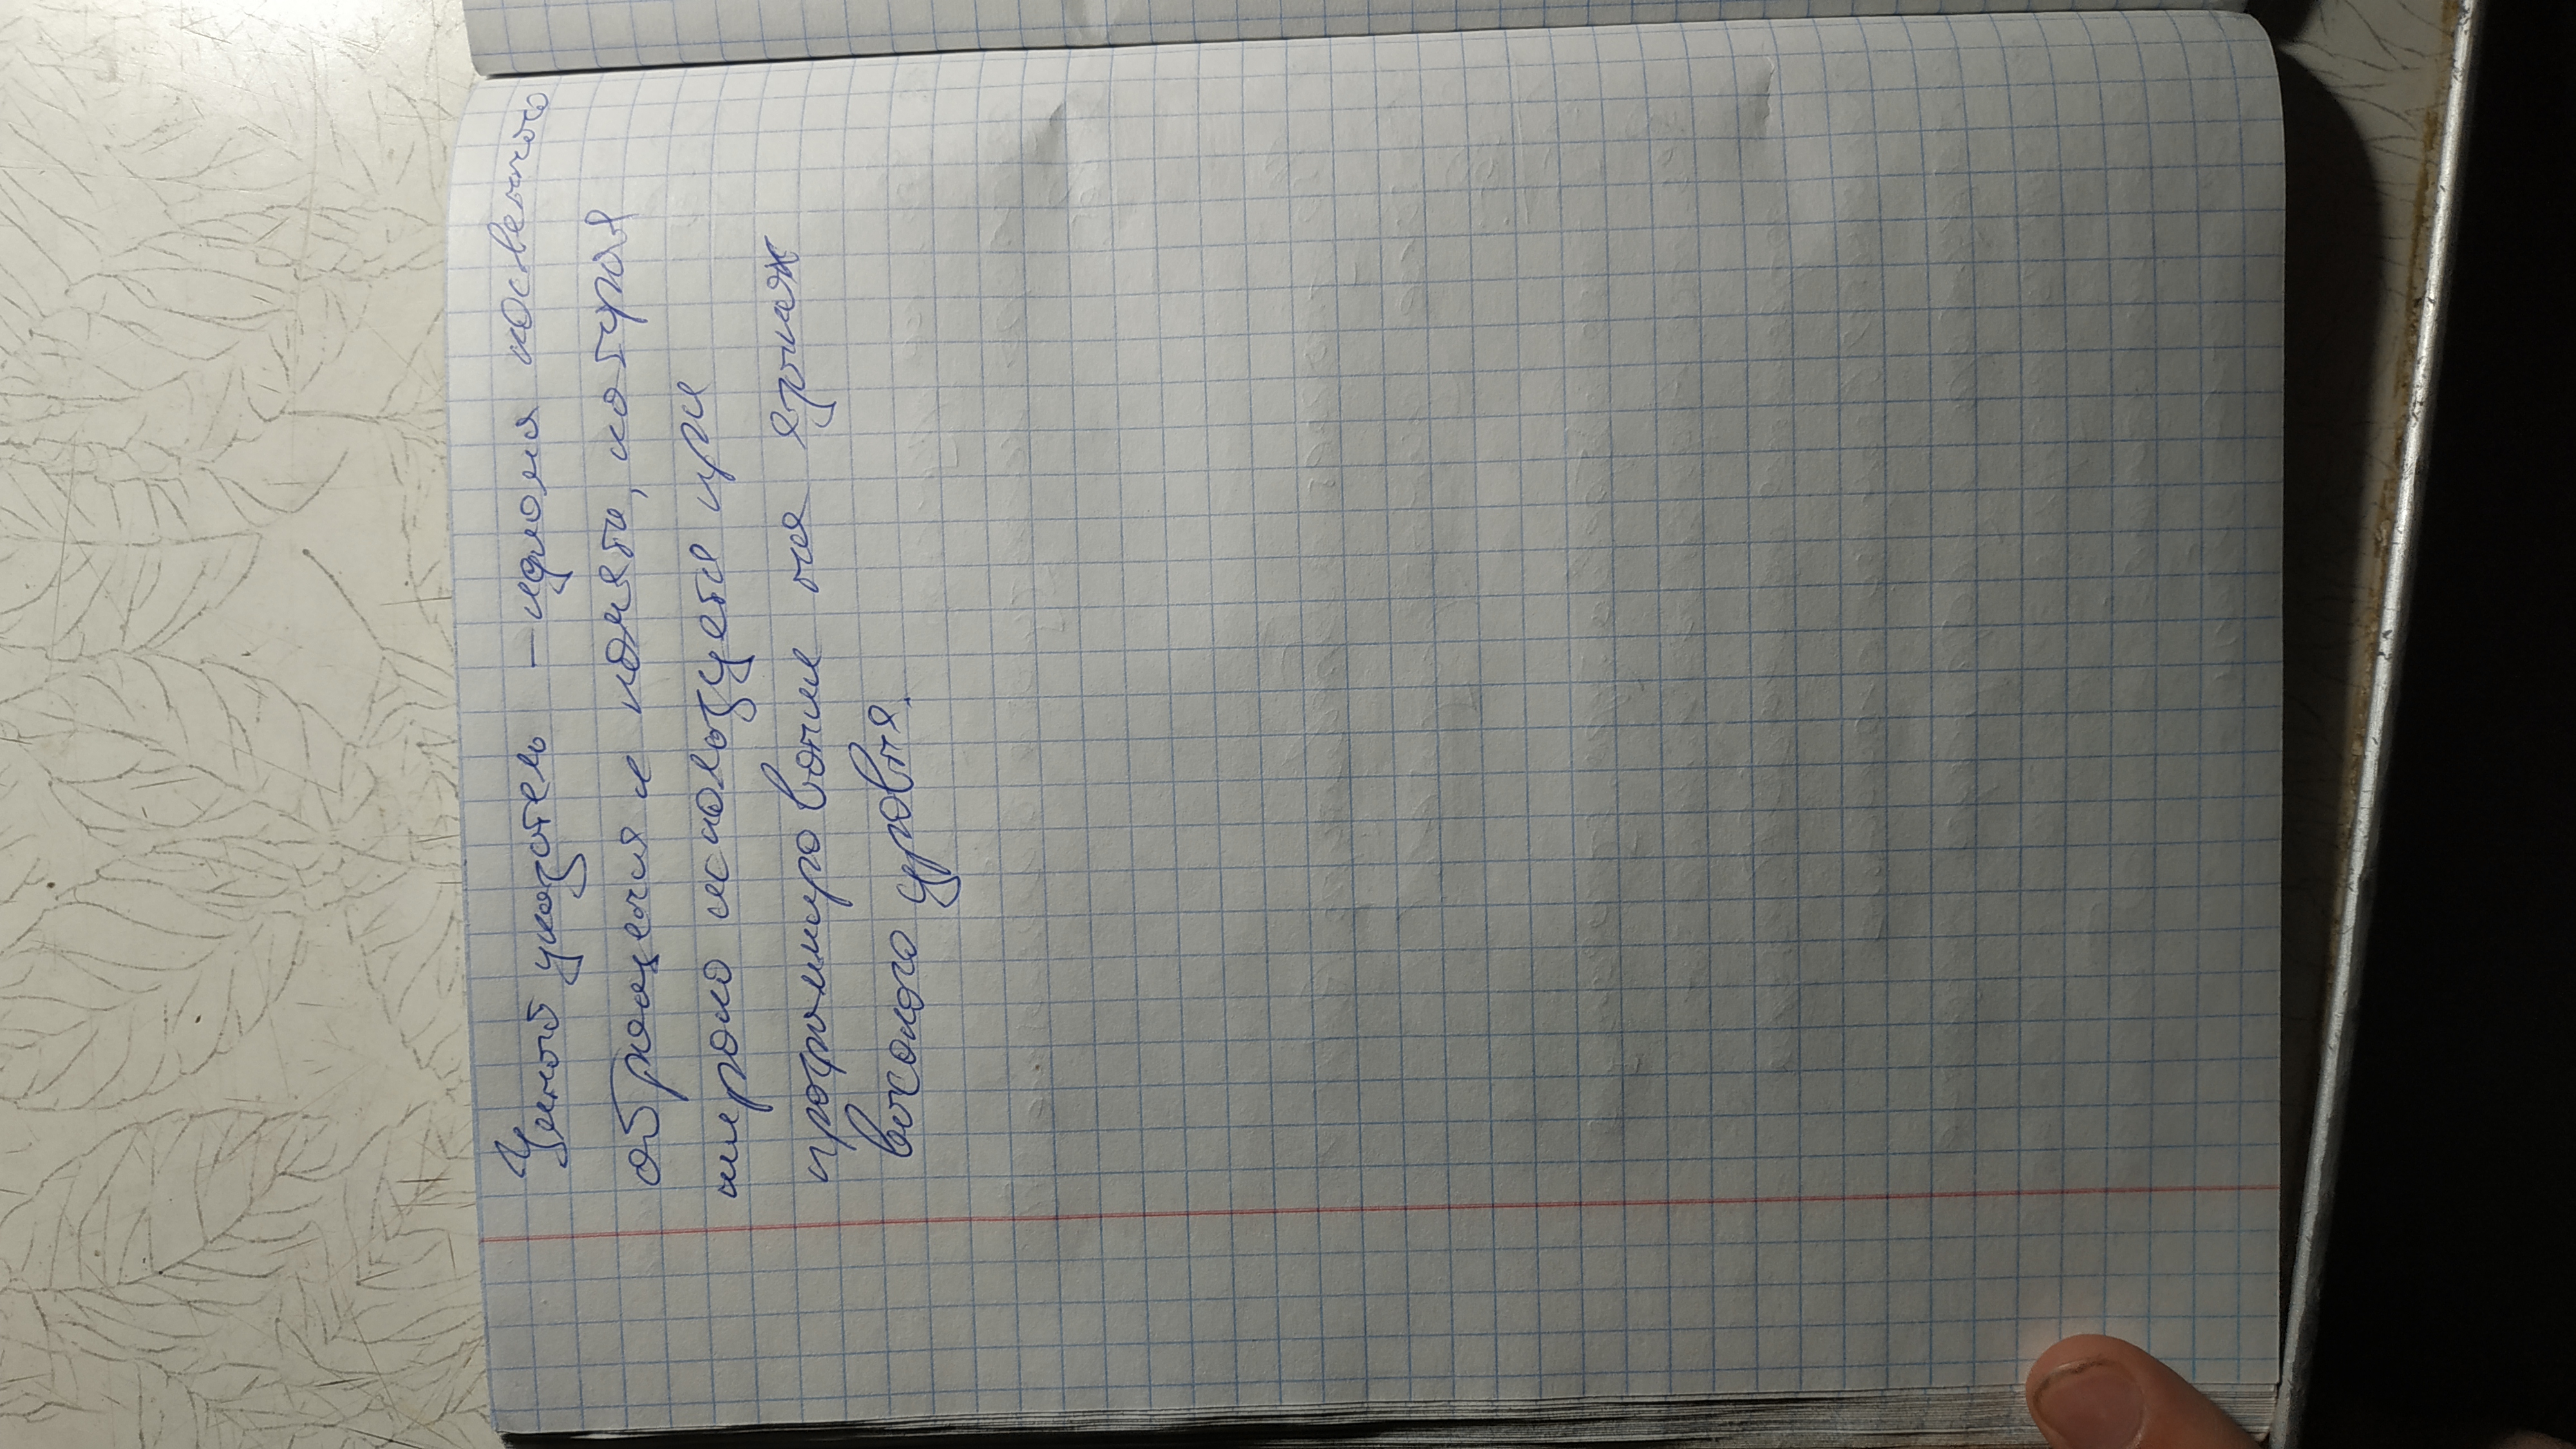 Умный указатель – идиома косвенного
обращения к памяти, которая
широко используется при
программировании на языках
высокого уровня.